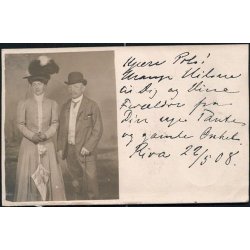 Kjære Pols!
Mange Hilsner
til Dig og Dine
Forældre fra
Din nye Tante
og gamle Onkel
Riva 22/5 08.